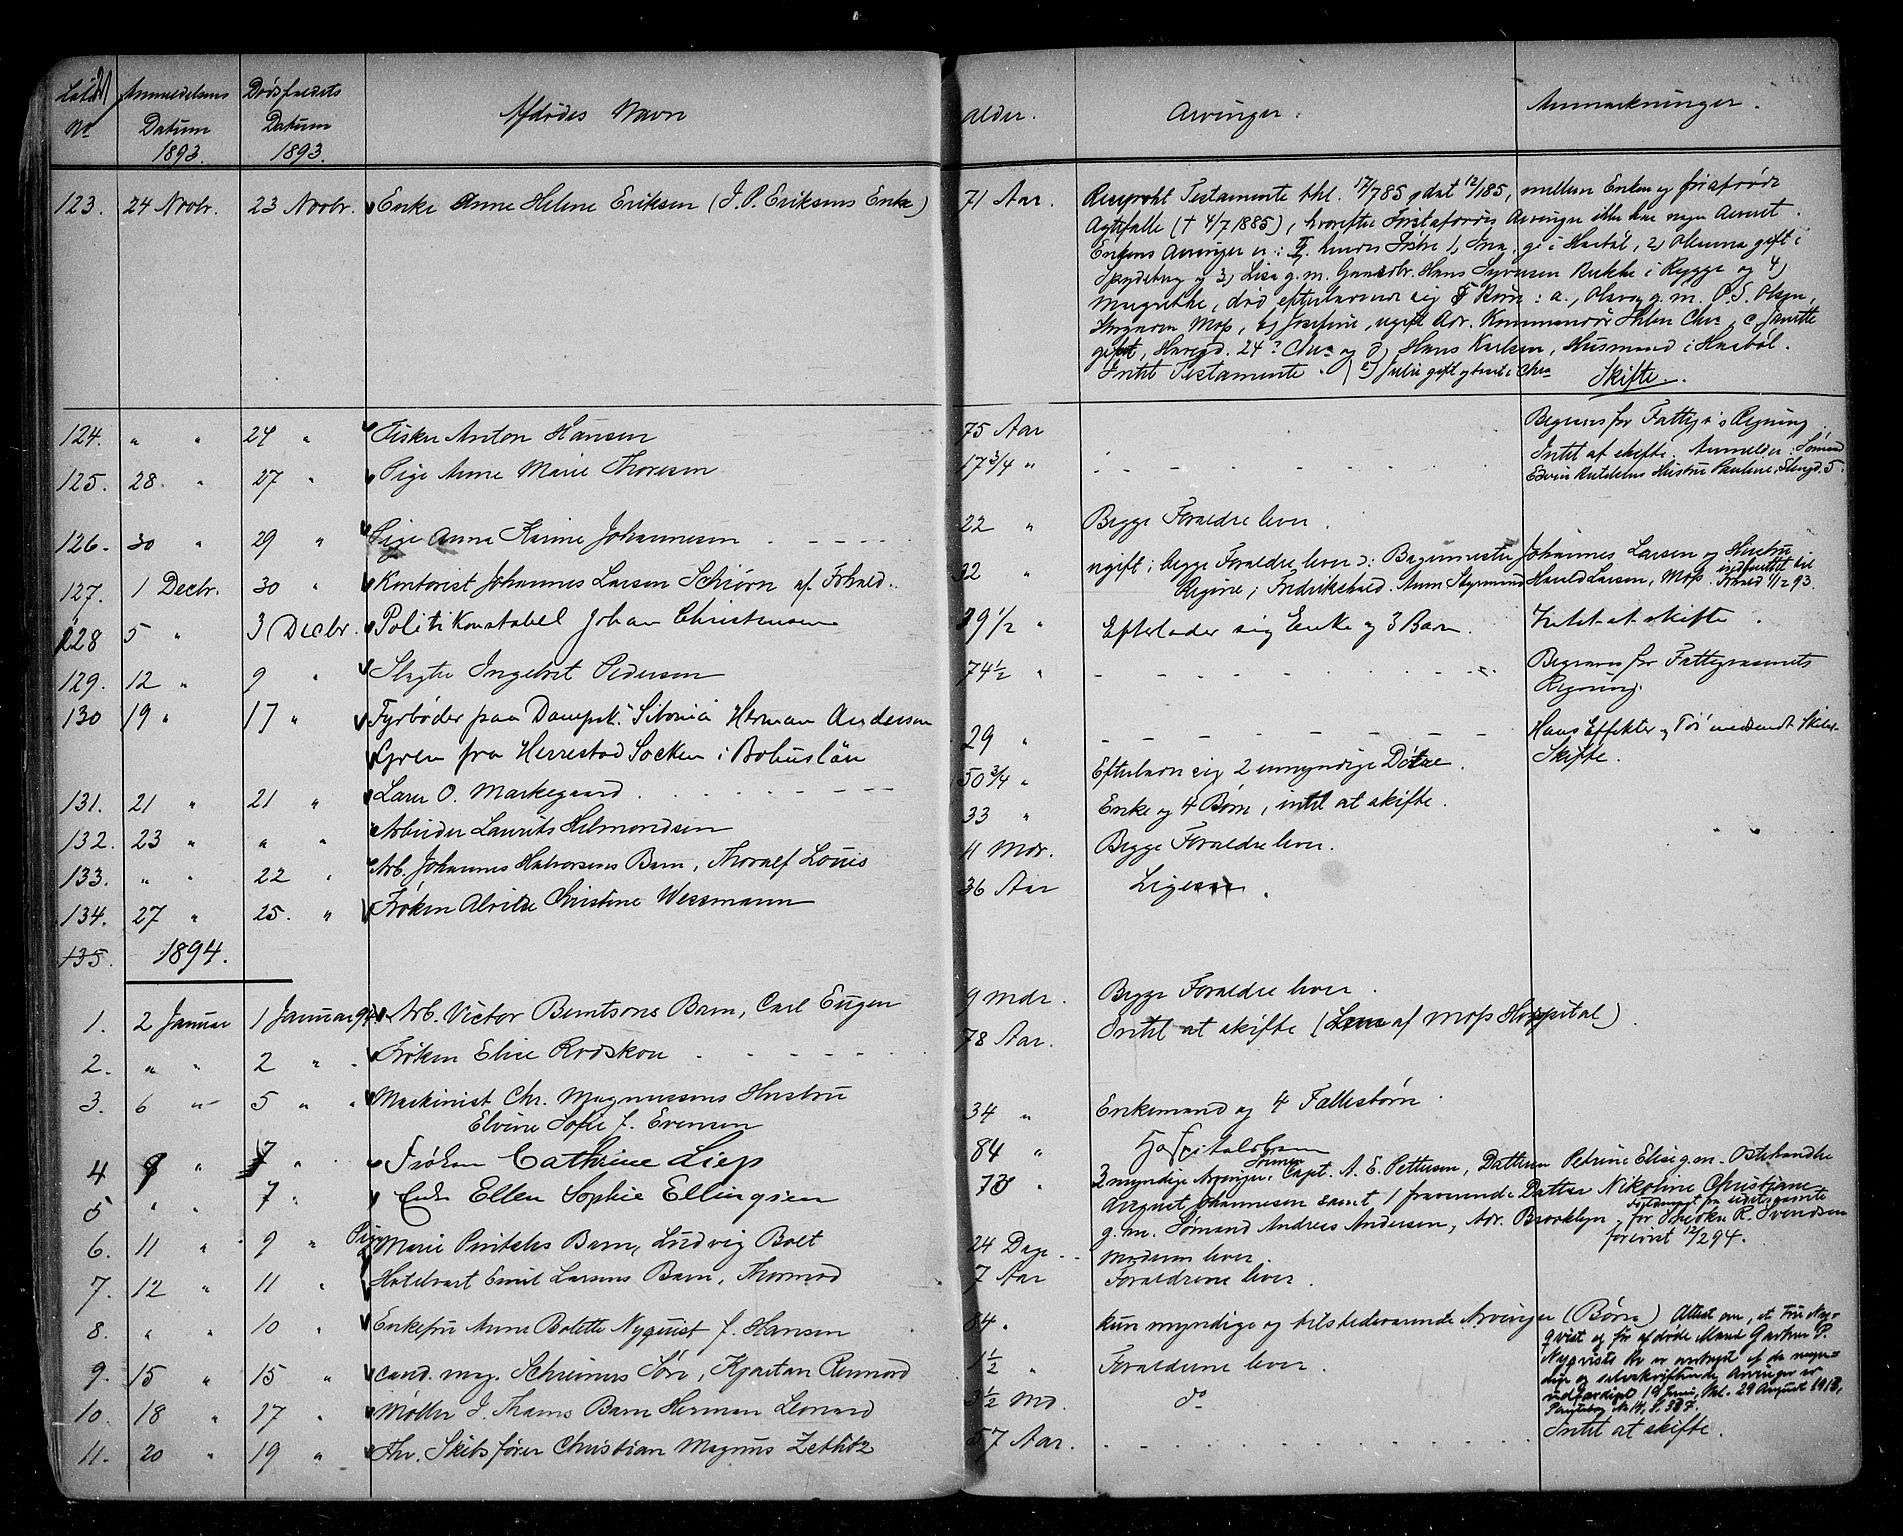 Løbe Anmeldelsens Dødsfaldets Afdødes Navn Alder. Arvinger. Anmærkninger.
No Datum Datum
1893. 1893.
123. 24 Novbr. 23 Novbr. Enke Anne Helene Eriksen (J. P. Eriksens Enke) 71 Aar. Reciprokt Testamente thl. 17/785, dat 12/185, mellem Enken og førstafdøde
Ægtefælle († 4/7 1885), hvorefter Førstafdødes Arvinger ikke har nogen Arveret.
Enkens Arvinger er: hendes Søstre 1, Ina, gift i Haabøl, 2) Oleanna gift i
Spydeberg og 3, Lisa g. m. Gaardbr. Hans Syversen Rukke i Rygge og 4)
Margrethe, død efterladende sig 5 Børn: a., Olava g. m. P. S. Olsen,
Moss, b) Josefine, ugift Adr. Chra, c Janette
gift, Havegd. 24 Chra og d) Hans Karlsen, Husmand i Haabøl.
Intet Testamente. (e) Julie gift i Chra Skifte.
124. " " 24 " Fisker Anton Hansen 75 Aar Begraves for Fattigv.s Regning
125. 28. " 27 " Pige Anne Marie Thoresen 17 3/4 " Intet at skifte. Anmelder: Sømand
Edvin Hustru Pauline, 5.
126. 30 " 29 " Pige Anna Karine Johannesen 22 " Begge Forældre lever.
127. 1 Decbr. 30 " Kontorist Johannes Larsen Schiørn af Frhald. 32 " ugift; begge Forældre lever: Bagermester Johannes Larsen og Hustru
Regine, Fredrikshald. Anm Styrmand Harald Larsen, Moss. indberettet til Frhald 1/12 93.
128 5 " 3 Decbr. Politikonstabel Johan Christensen 39 1/2 " Efterlader sig Enke og 3 Barn. Intet at skifte.
129. 12 " 9 " Slagter Ingebret Pedersen 74 1/2 " Begraves for Fattigvæsenets
Regning.
130 19 " 17 " Fyrbøder paa Dampsk. "Sitonia" Herman Andersen 29 " Hans Effekter og Tøi nedsendt
Gren fra Herrestad Socken i Bohuslän Skifte.
131. 21 " 21 " Lars O. Markegaard 50 3/4 " Efterladen sig 2 umyndige Døtre.
132. 23 " " " Arbeider Laurits Helmondsen 33 " Enke og 4 Børn, intet at skifte.
133. " " 22 " Arb. Johannes Halvorsens Barn, Thoralf Louis 11 Mdr. Begge Forældre lever.
134. 27 " 25. " Frøken Alvilde Christine Wessmann 36 Aar Ligesaa.
135. 1894.
1. 2 Januar 1 Januar 94. Arb. Victor Berntsens Barn, Carl Eugen 9 Mdr. Begge Forældre lever.
2. " " 2 " Frøken Elise Rodskou 78 Aar. Intet at skifte (Lem af Moss Hospital)
3. 6 " 5 " Maskinist Chr. Magnussens Hustru 34 " Enkemand og 4 Fællesbørn.
Elvine Sofie f. Evensen
4 8 " 7 " Frøken Cathrine Liep 84 " Hospitalslem
5 " " 7 " Enke Ellen Sophie Ellingsen 73 " 2 myndige Arvinger, Sønnen Capt. A. E. Pettersen, Datteren Petrine Elise g. m. Ostehandler
August Johannesen samt 1 fraværende Datter Nikoline Christiane
g. m. Sømand Andreas Andersen, Adr. Brooklyn, Fuldmagt fra sidstnævnte for R. Svendsen
forevist 12/2 94.
6. 11 " 9 " Pige Marie Barn, Ludvig Bolt 24 Dage Moderen lever.
7. 12 " 11 " Hotelvært Emil Larsens Barn, Thormod 7 Aar Forældrene lever.
8. " " 10 " Enkefru Anne Bolette Nyquist f. Hansen 84 " kun myndige og tilstedeværende Arvinger (Børn) Attest om, at Fru Ny-
qvist og før afdøde Mand Garber P.
Nyqvists Bo er overtaget af de myn-
dige og selvskiftende Arvinger er
udfærdiget 19 Juni, thl. 29 August 1913,
Pantebog No 14, s. 387.
9. 15 " 15 " cand. mag. Schreiners Søn, Kjartan 1 1/2 " Forældrene lever.
10. 18 " 17 " Møller J. Thams Barn Herman Leonard 3 1/2 Md. do
11. 20 " 19 " Fhv. Skibsfører Christian Magnus Zetlitz 57 Aar. Intet at skifte.